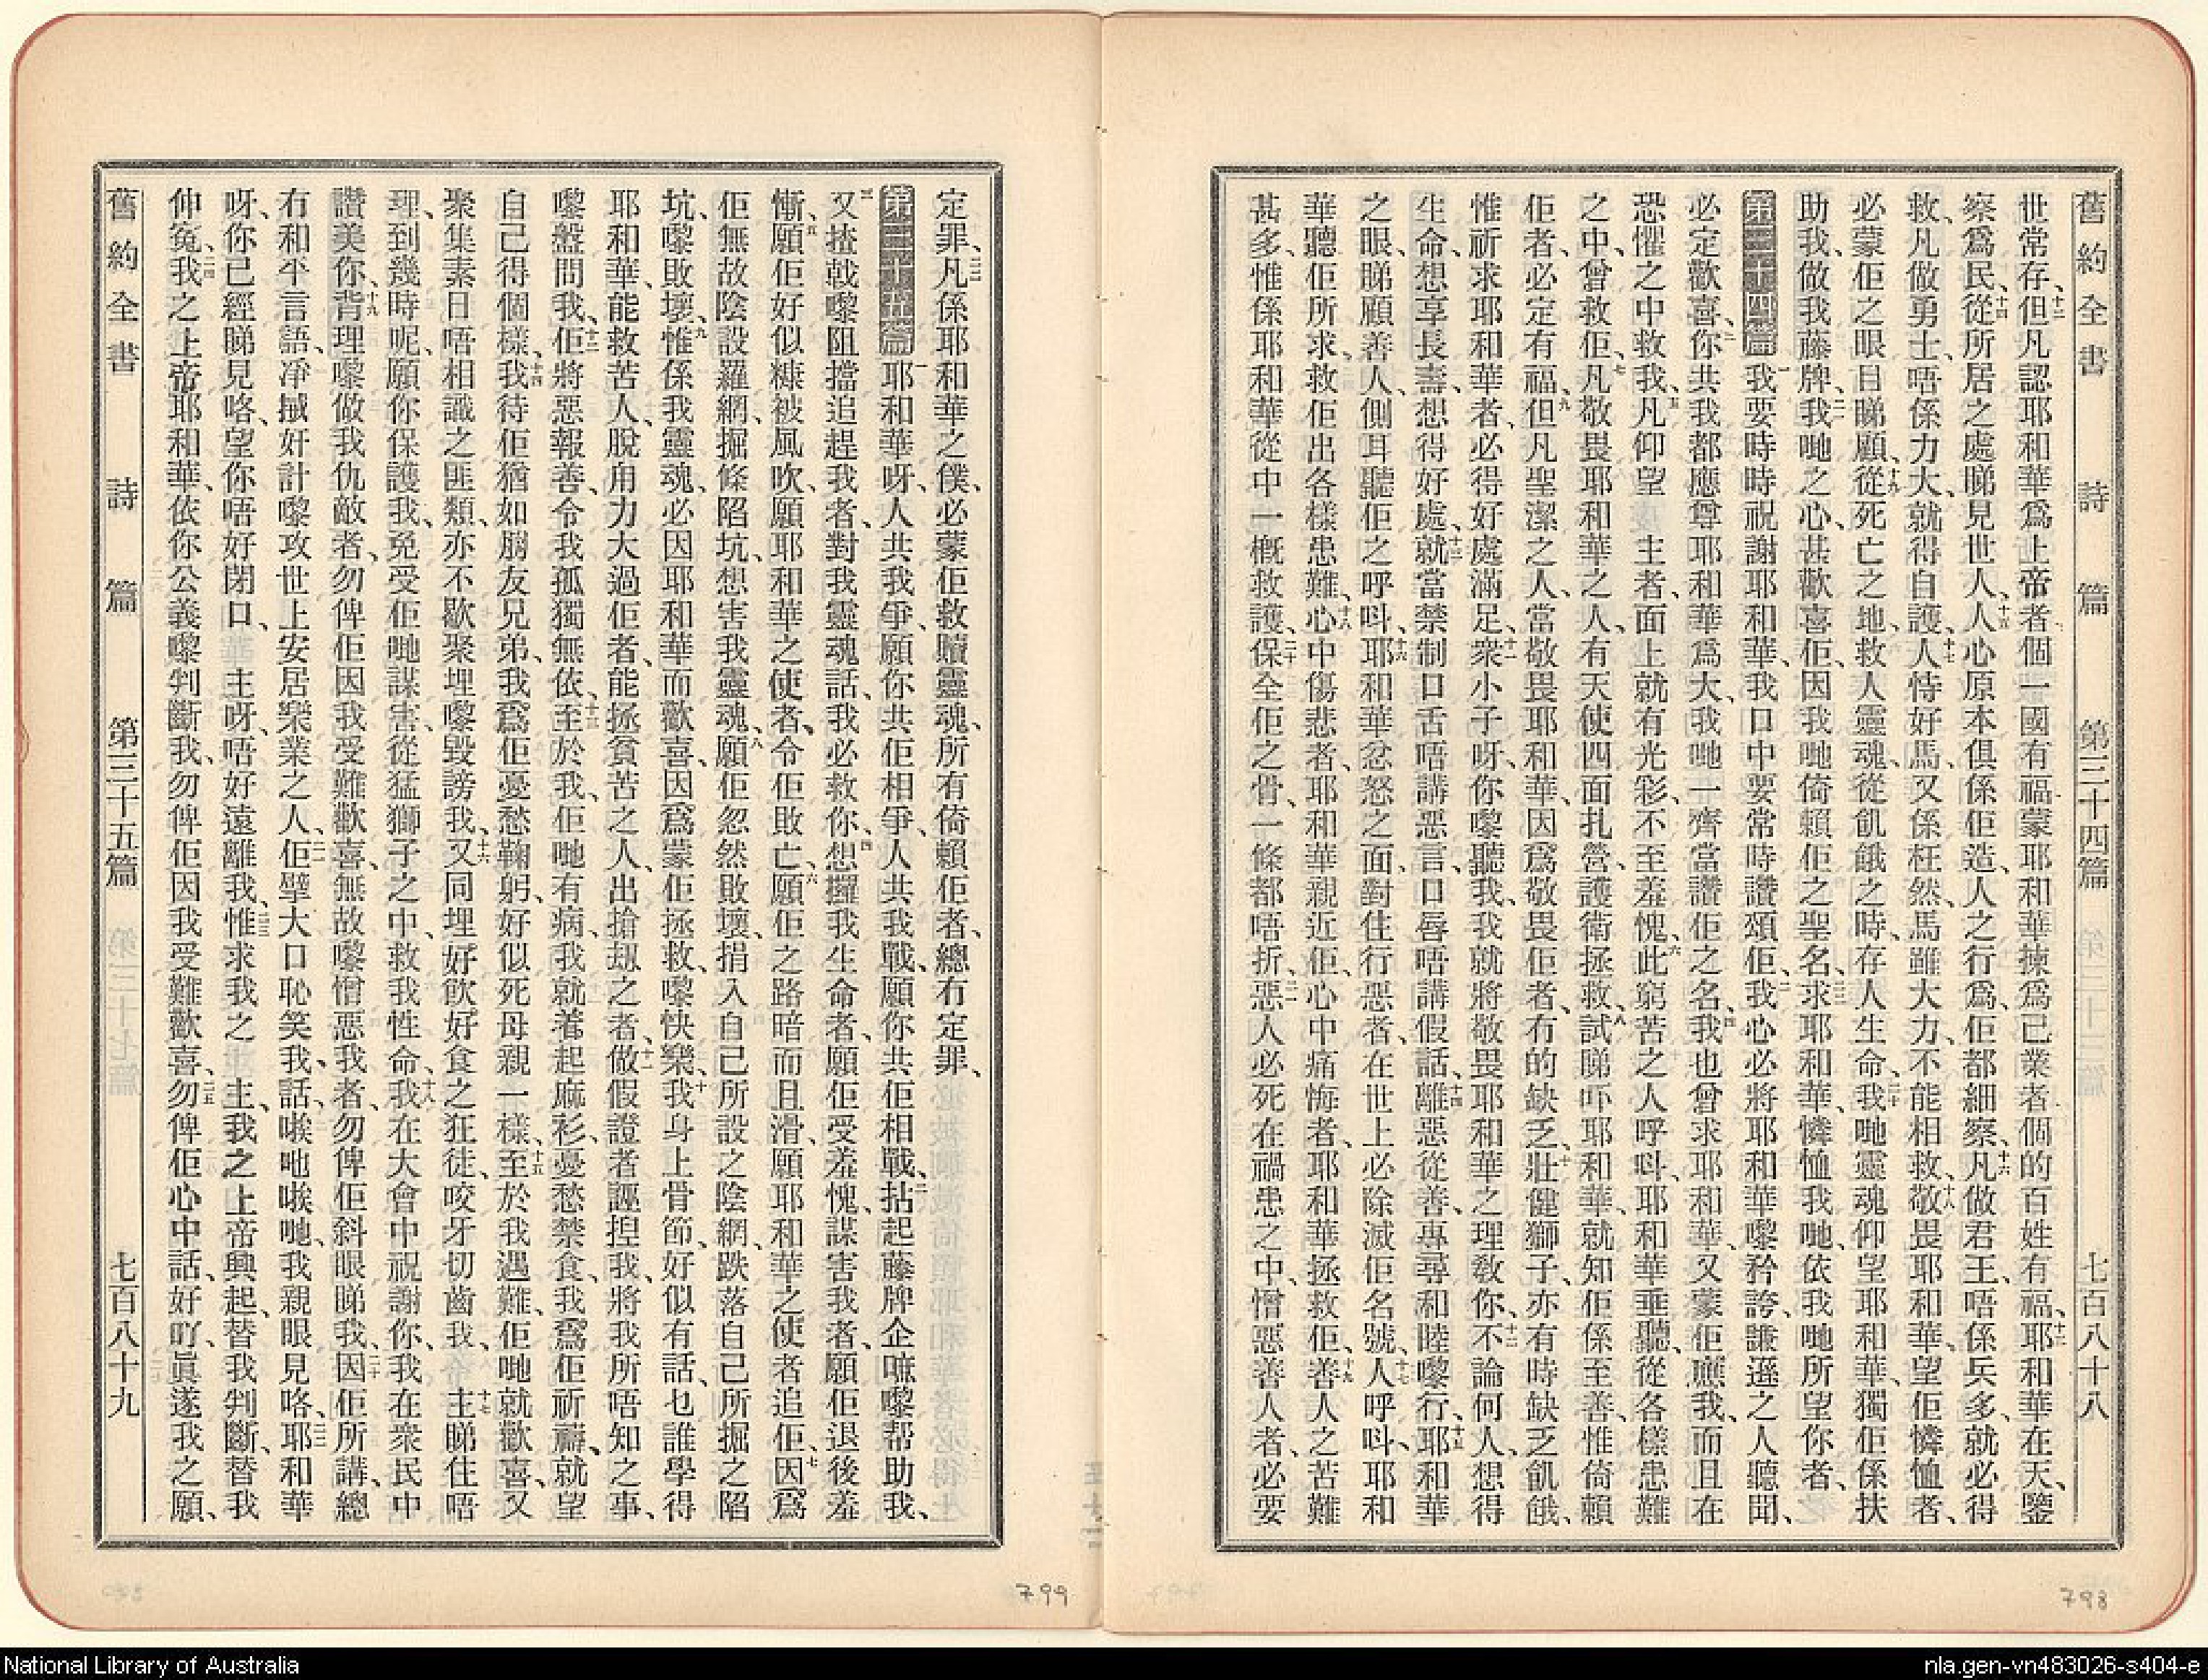 舊約全書　詩　篇　第三十四篇　七百八十八
世常存、十二但凡認耶和華爲上帝者個一國有福、蒙耶和華揀爲己業者個的百姓有福、十三耶和華在天、鑒
察爲民、十四從所居之處睇見世人、十五人心原本俱係佢造、人之行爲、佢都細察、十六凡做君王、唔係兵多、就必得
救、凡做勇士、唔係力大、就得自護、十七人恃好馬、又係枉然、馬雖大力、不能相救、十八敬畏耶和華、望佢憐恤者、
必蒙佢之眼目睇顧、十九從死亡之地、救人靈魂、從飢餓之時、存人生命、二十我哋靈魂仰望耶和華、獨佢係扶
助我、做我藤牌、二一我哋之心、甚歡喜佢、因我哋倚賴佢之聖名、二二求耶和華、憐恤我哋、依我哋所望你者、
第三十四篇一我要時時祝謝耶和華、我口中要常時讚頌佢、二我心必將耶和華嚟矜誇、謙遜之人聽聞、
必定歡喜、三你共我都應尊耶和華爲大、我哋一齊當讚佢之名、四我也曾求耶和華、又蒙佢應我、而且在
恐懼之中救我、五凡仰望　主者、面上就有光彩、不至羞愧、六此窮苦之人呼呌、耶和華垂聽、從各樣患難
之中、曾救佢、七凡敬畏耶和華之人、有天使四面扎營、護衛拯救、八試睇吓耶和華、就知佢係至善、惟倚賴
佢者、必定有福、九但凡聖潔之人、當敬畏耶和華、因爲敬畏佢者、有的缺乏、十壯健獅子、亦有時缺乏飢餓、
惟祈求耶和華者、必得好處滿足、十一衆小子呀、你嚟聽我、我就將敬畏耶和華之理敎你、十二不論何人、想得
生命、想享長壽、想得好處、十三就當禁制口舌唔講惡言、口唇唔講假話、十四離惡從善、專尋和睦嚟行、十五耶和華
之眼、睇顧善人、側耳聽佢之呼呌、十六耶和華忿怒之面、對住行惡者、在世上必除滅佢名號、十七人呼呌、耶和
華聽佢所求、救佢出各樣患難、十八心中傷悲者、耶和華親近佢、心中痛悔者、耶和華拯救佢、十九善人之苦難
甚多、惟係耶和華從中一槪救護、二十保全佢之骨、一條都唔折、二一惡人必死在禍患之中、憎惡善人者、必要
定罪、二二凡係耶和華之僕、必蒙佢救贖靈魂、所有倚賴佢者、總冇定罪、
第三十五篇一耶和華呀、人共我爭、願你共佢相爭、人共我戰、願你共佢相戰、二拈起藤牌企㕑嚟帮助我、
三又揸戟嚟阻擋追趕我者、對我靈魂話、我必救你、四想攞我生命者、願佢受羞愧、謀害我者、願佢退後羞
慚、五願佢好似糠被風吹、願耶和華之使者、令佢敗亡、六願佢之路暗而且滑、願耶和華之使者追佢、七因爲
佢無故陰設羅網、掘條陷坑、想害我靈魂、八願佢忽然敗壞、捐入自己所設之陰網、跌落自己所掘之陷
坑、嚟敗壞、九惟係我靈魂、必因耶和華而歡喜、因爲蒙佢拯救、嚟快樂、十我身上骨節、好似有話、乜誰學得
耶和華、能救苦人、脫甪力大過佢者、能拯貧苦之人、出搶刼之者、十一做假證者誣揑我、將我所唔知之事、
嚟盤問我、十二佢將惡報善、令我孤獨無依、十三至於我、佢哋有病、我就着起麻衫、憂愁禁食、我爲佢祈禱、就望
自己得個樣、十四我待佢猶如朋友兄弟、我爲佢憂愁鞠躬、好似死母親一樣、十五至於我遇難、佢哋就歡喜、又
聚集素日唔相識之匪類、亦不歇聚埋嚟毀謗我、十六又同埋好飲好食之狂徒、咬牙切齒我、十七　主睇住唔
理、到幾時呢、願你保護我、免受佢哋謀害、從猛獅子之中、救我性命、十八我在大會中祝謝你、我在衆民中
讚美你、十九背理嚟做我仇敵者、勿俾佢因我受難歡喜、無故嚟憎惡我者、勿俾佢斜眼睇我、二十因佢所講、總
冇和平言語、凈搣奸計嚟攻世上安居樂業之人、二一佢擘大口恥笑我、話、唉吔唉哋、我親眼見咯、二二耶和華
呀、你已經睇見咯、望你唔好閉口、　主呀、唔好遠離我、二三惟求我之　主、我之上帝興起、替我判斷、替我
伸冤、二四我之上帝耶和華、依你公義嚟判斷我、勿俾佢因我受難歡喜、二五勿俾佢心中話、好吖、眞遂我之願、
舊約全書　詩　篇　第三十五篇　七百八十九
798
799
National Library of Australia
nla.gen-vn483026-s404-e